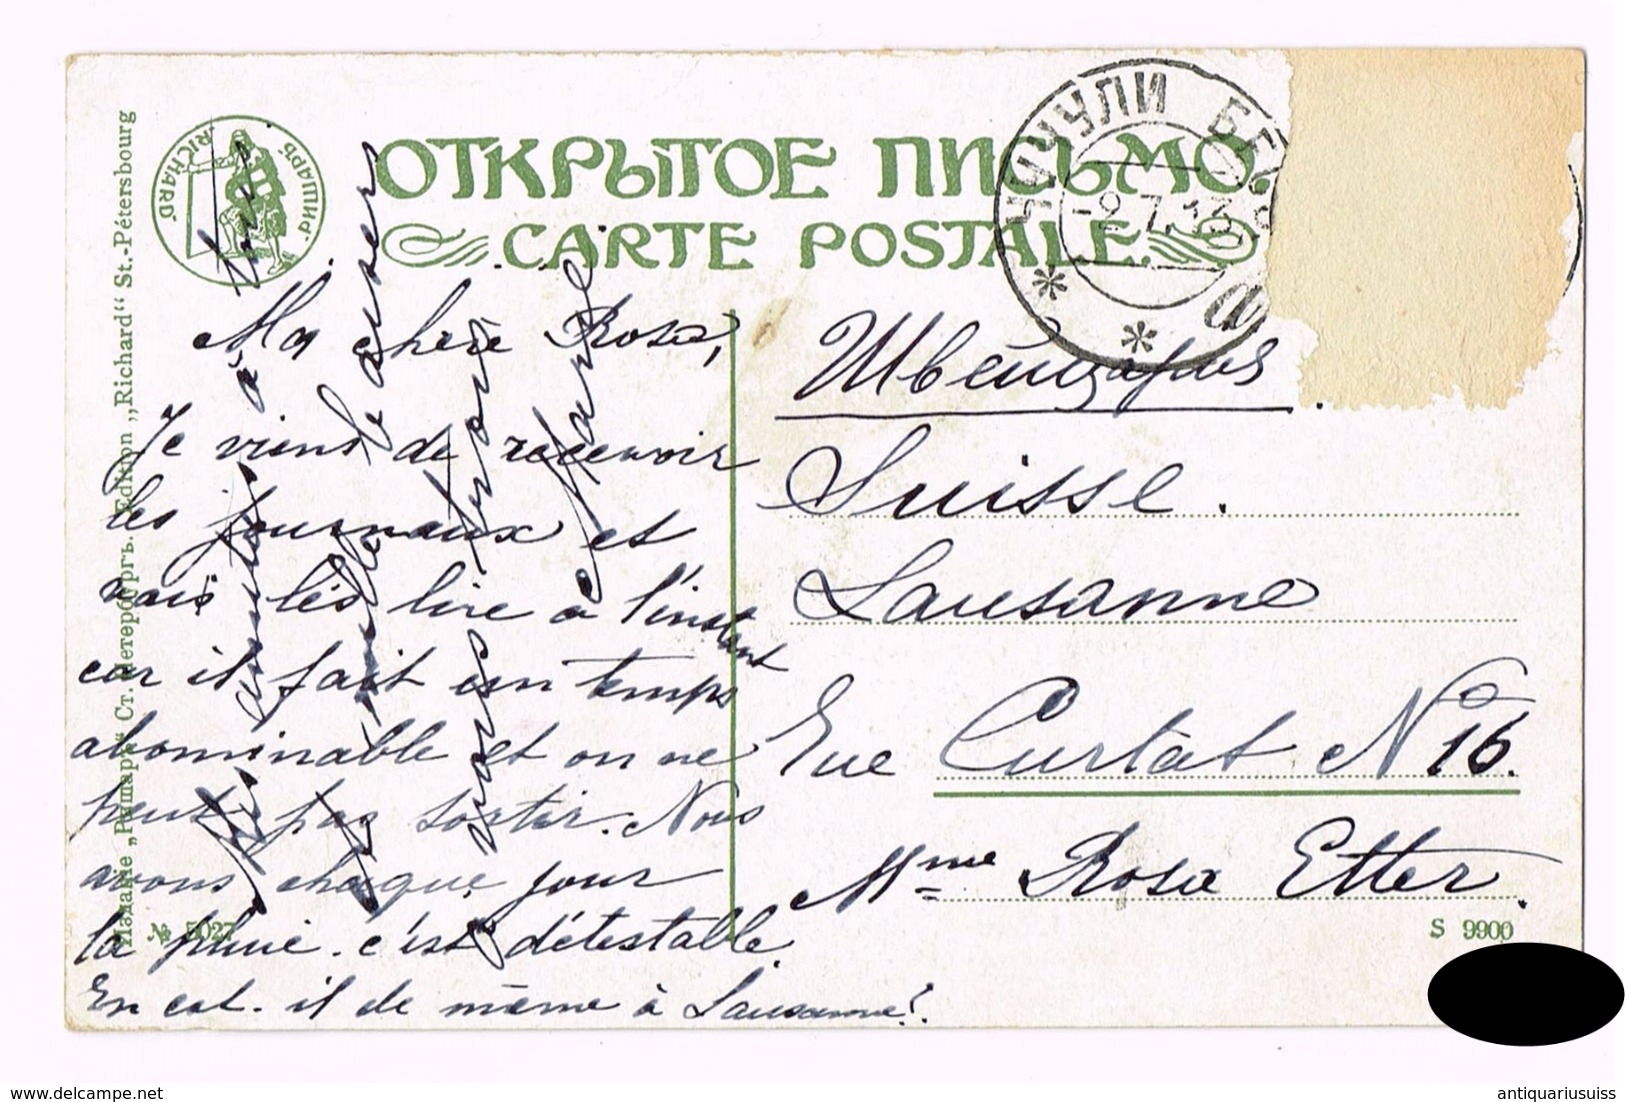 ОТКРЫТОЕ ПИСЬМО.
CARTE POSTALE.
РИШАРЪ
RICHARD
Изданіе „Ришаръ“ Ст. Петербургъ. Edition „Richard“ St.-Pétersbourg
№ 5027
ЧУЧУЛИ БЕ
-9.7.13
а
Ma chère Rosa,
Je viens de recevoir
les journaux et
vais les lire à l'instant
car il fait un temps
abominable et on ne
peut pas sortir. Nous
avons chaque jour
la pluie. c'est détestable.
En est-il de même à Lausanne?
Mes amitiés à tous
Marie
Швейцарія
Suisse.
Lausanne
Rue Curtat No 16.
Mme Rosa Etter.
S 9900
antiquariusuiss